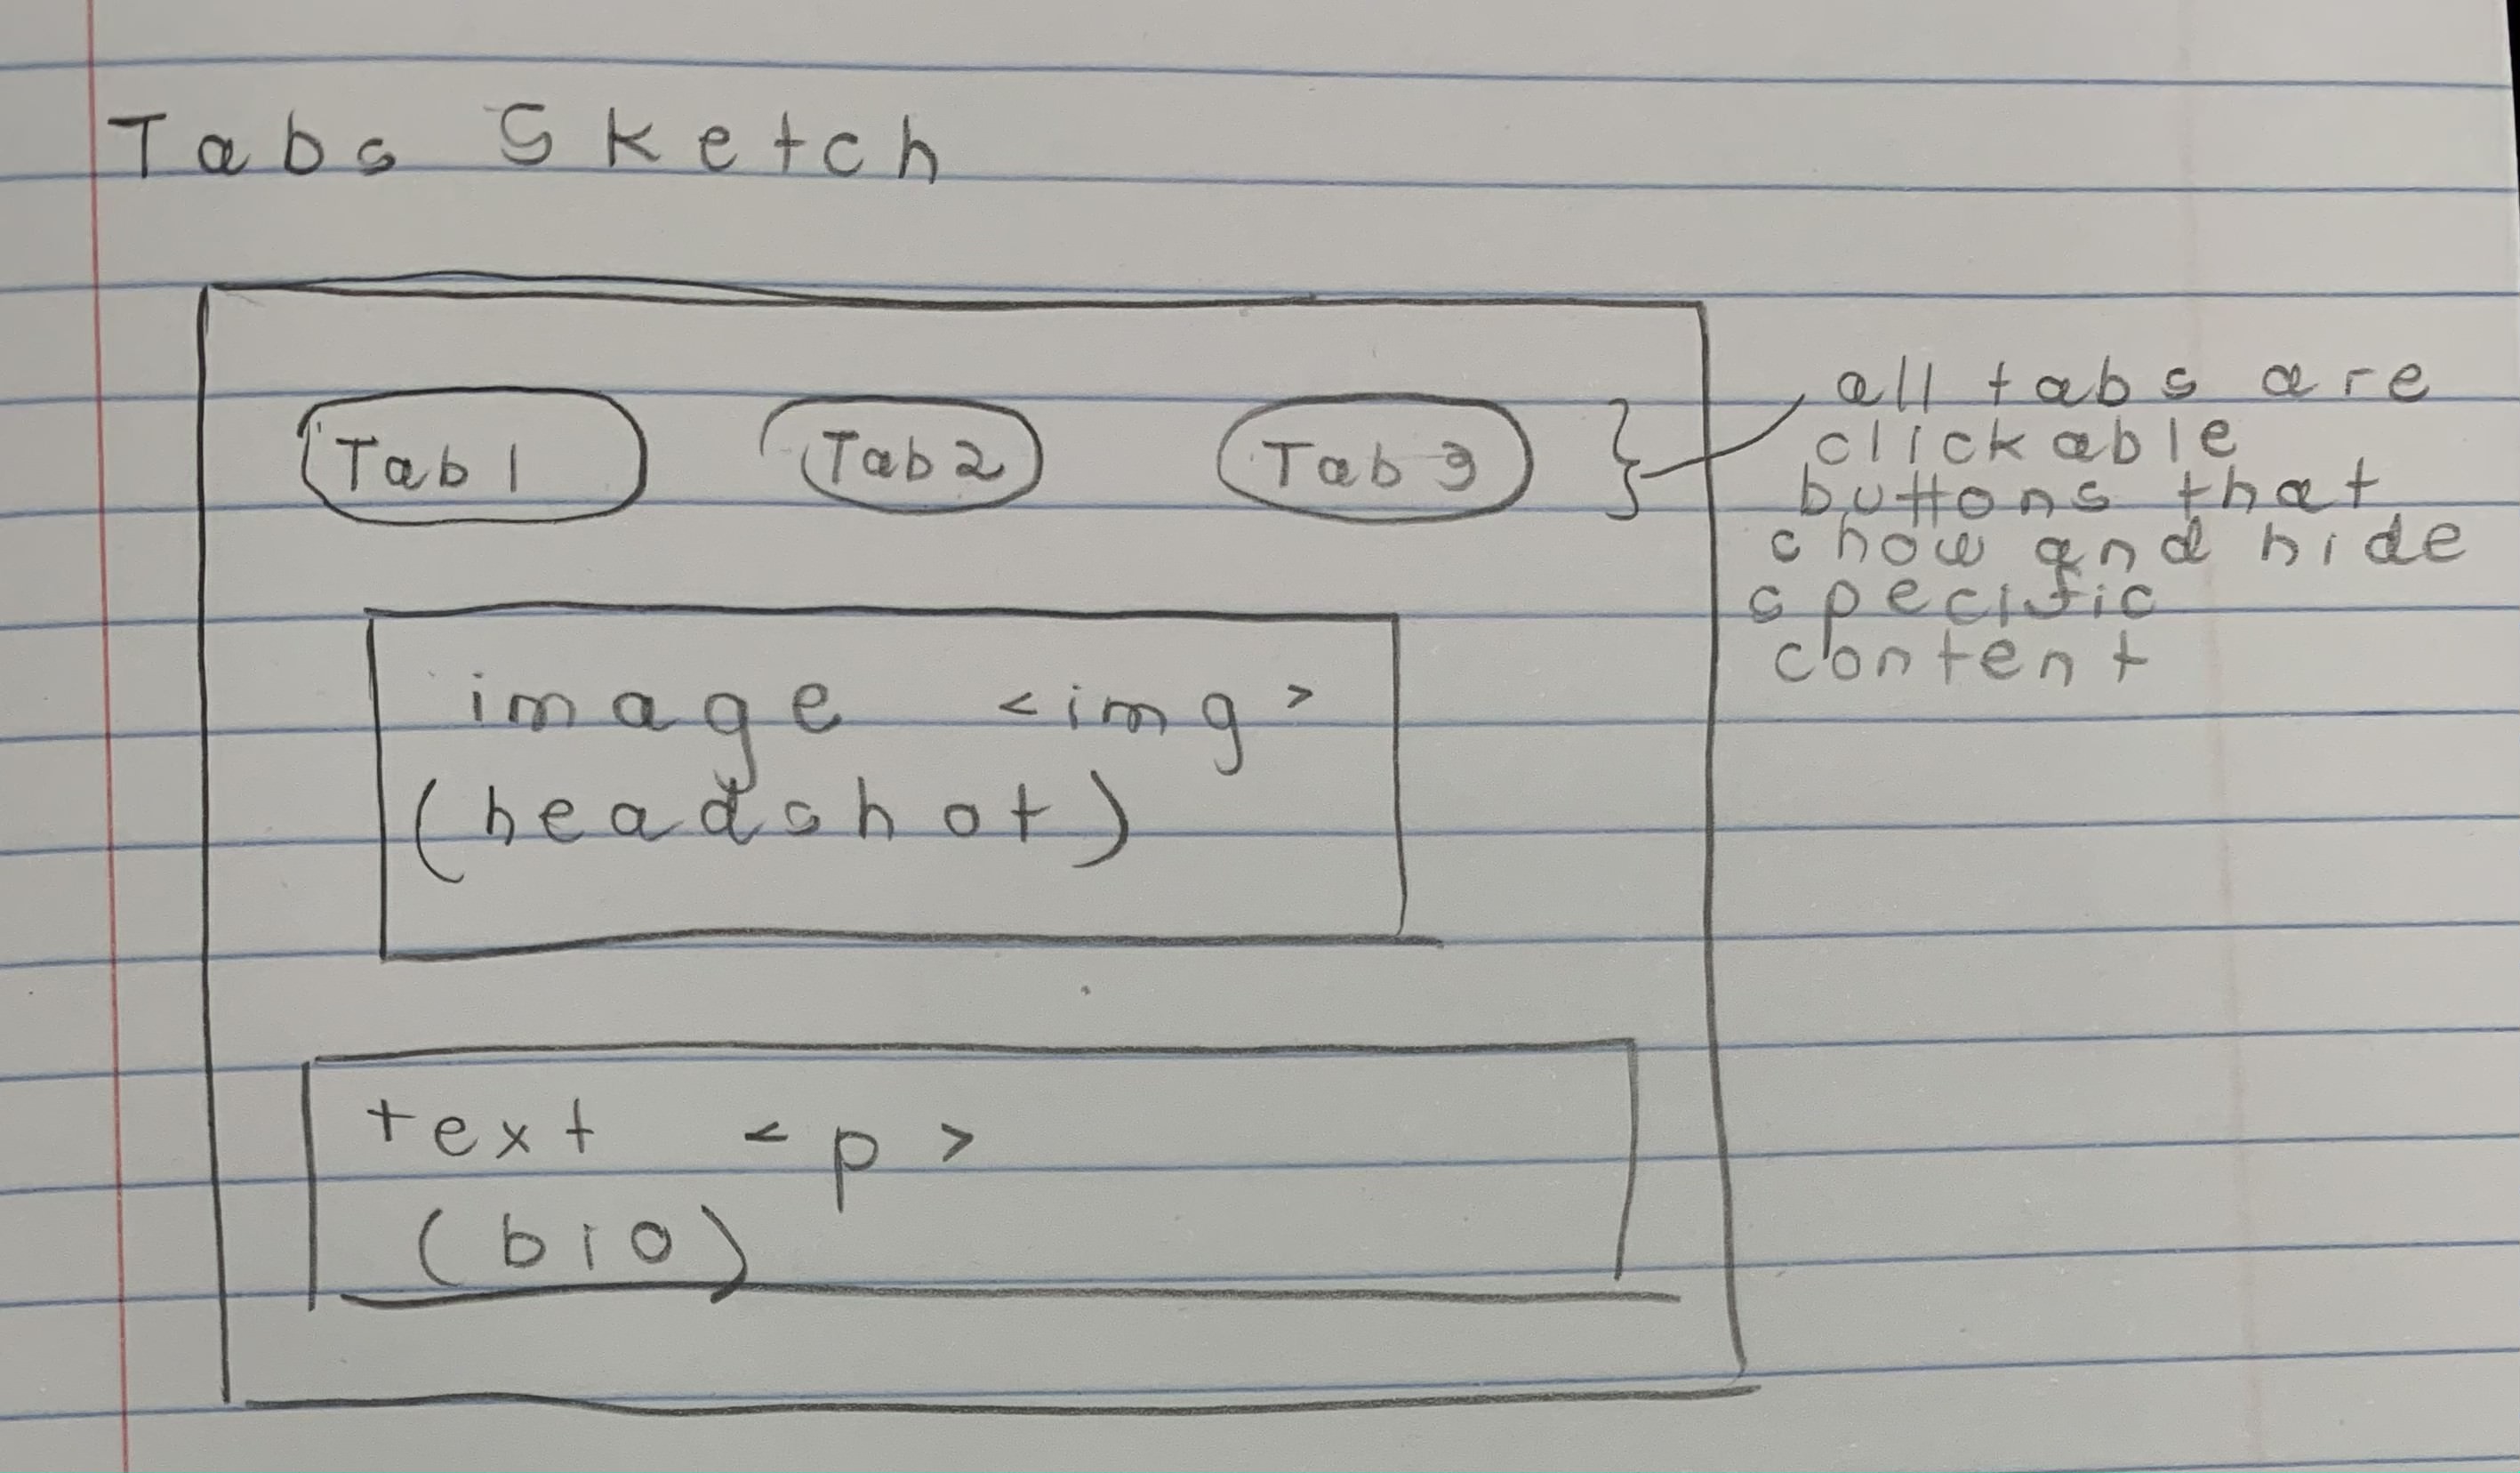 Tabs Sketch
Tab 1
Tab 2
Tab 3
all tabs are
clickable
buttons that
show and hide
specific
content
image <img>
(headshot)
text <p>
(bio)